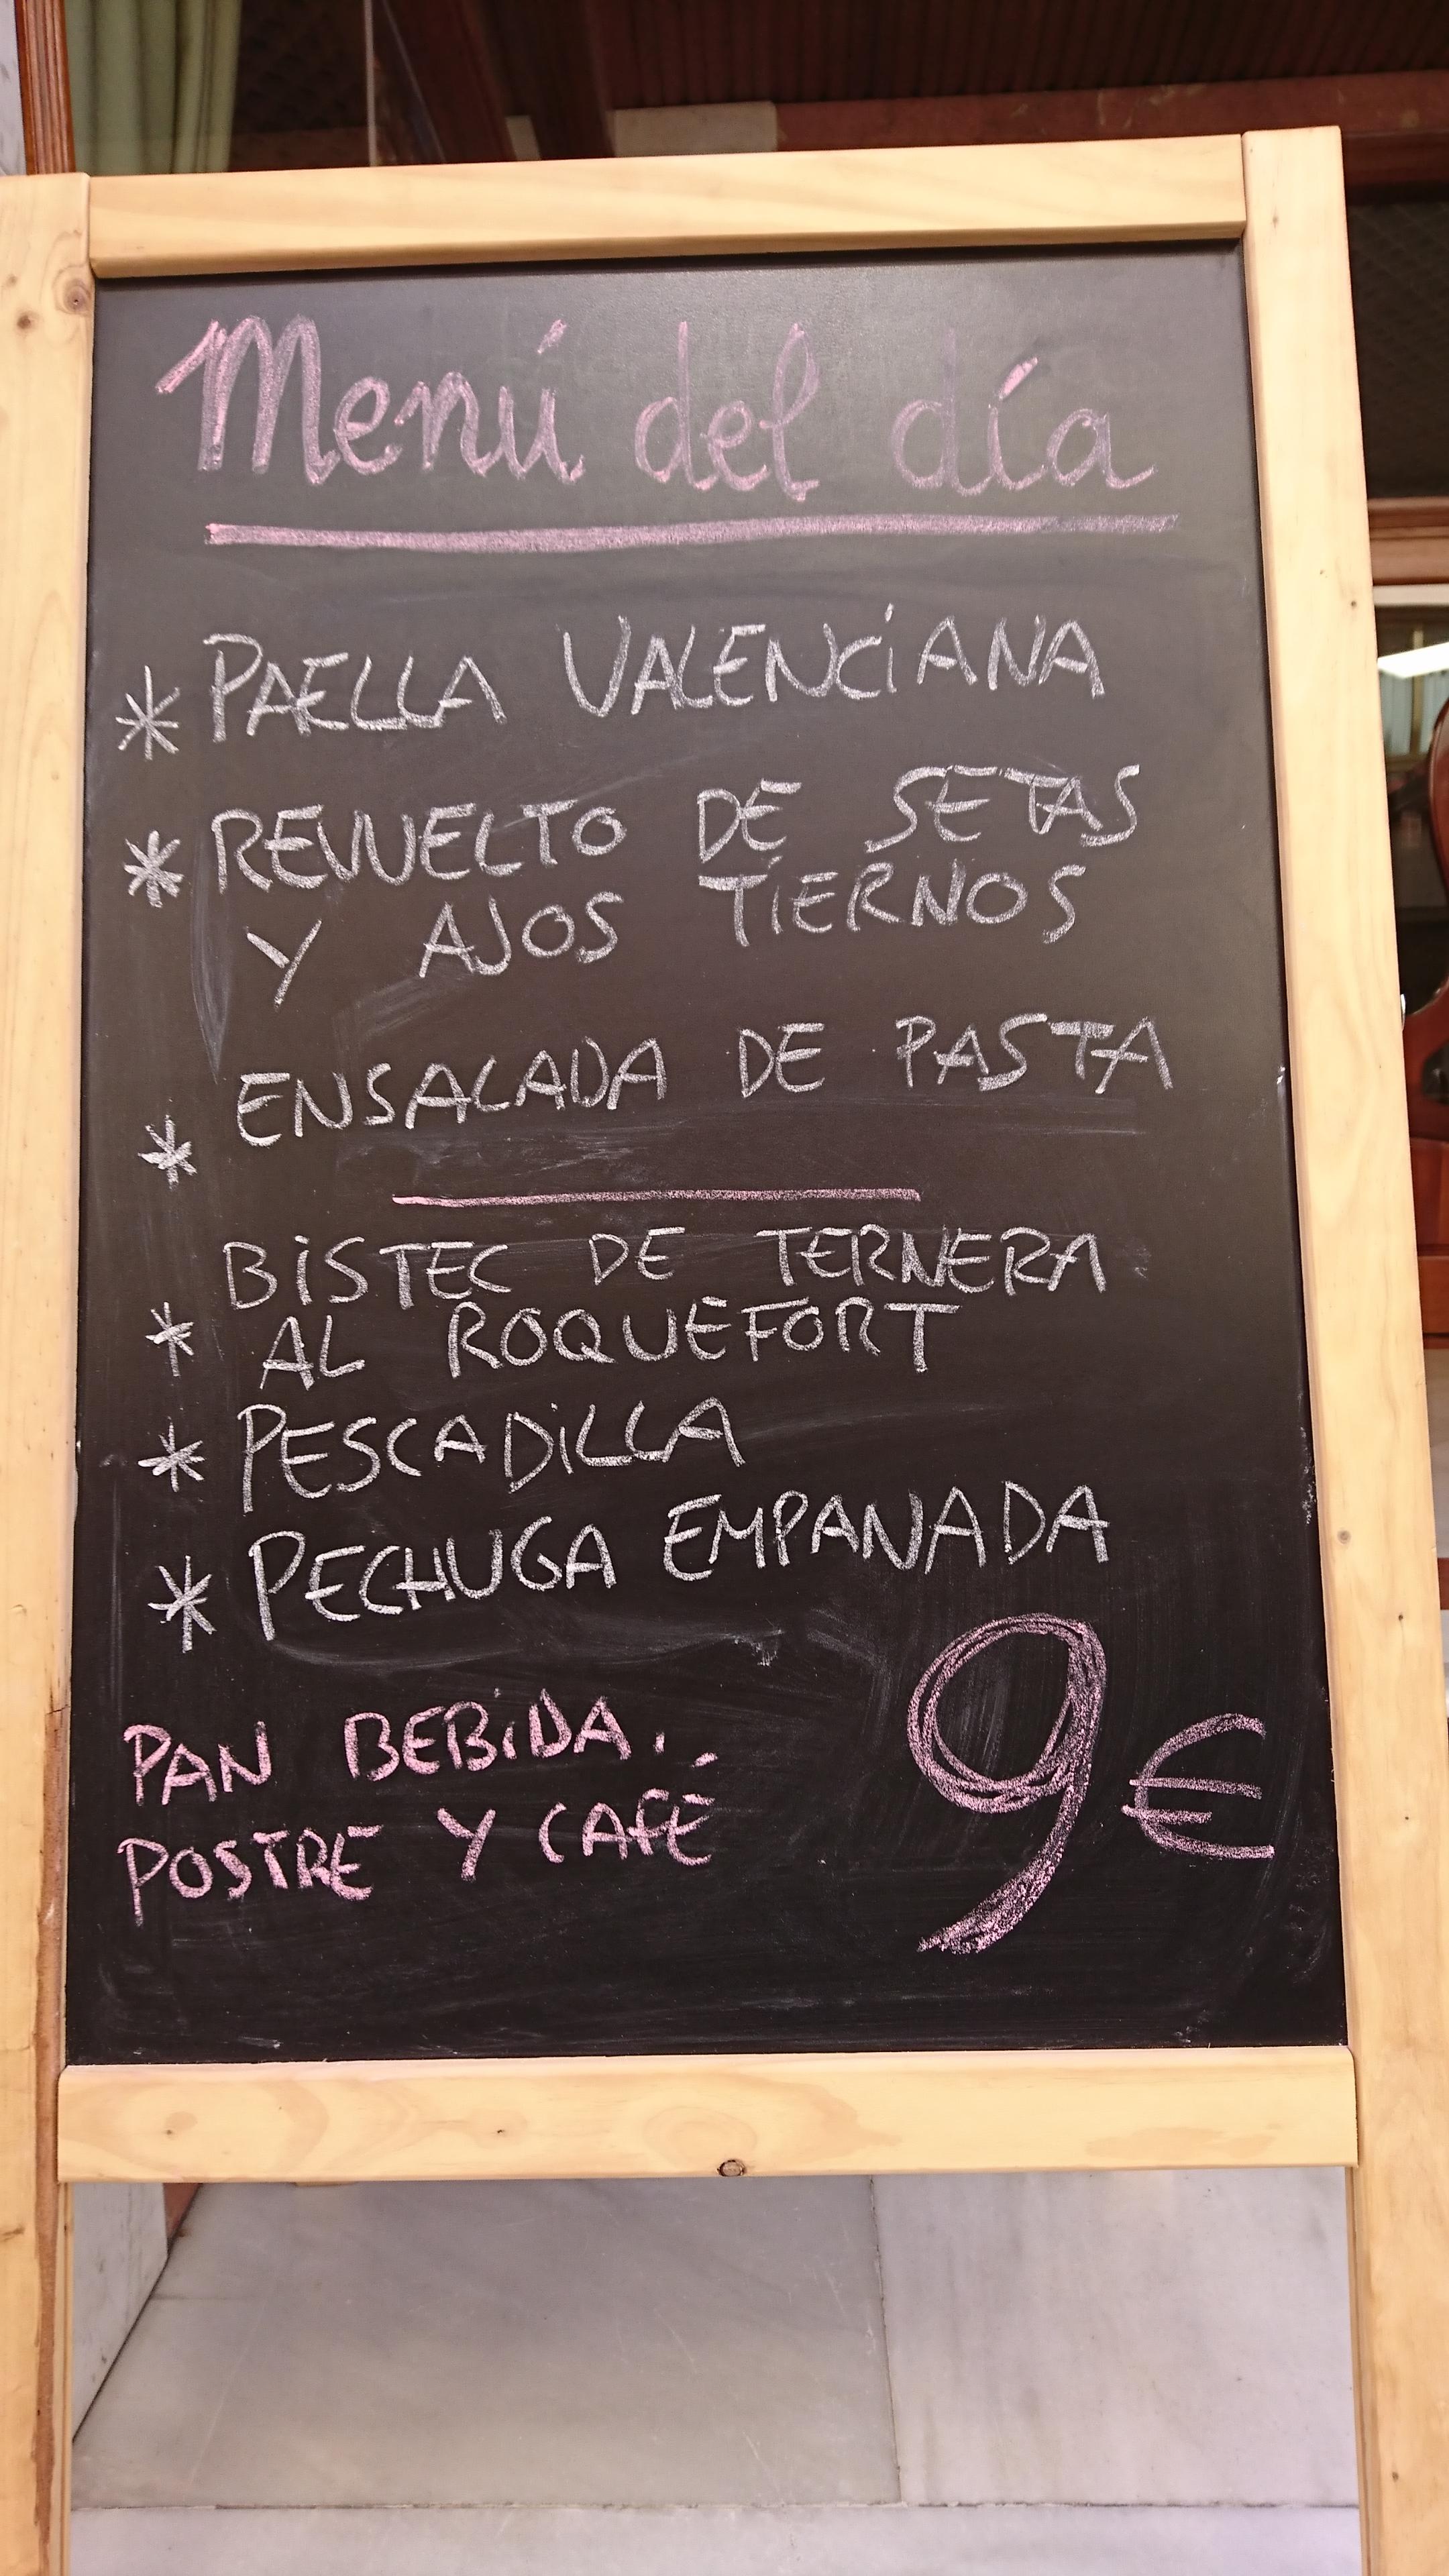 Menú del día
* PAELLA VALENCIANA
* REVUELTO DE SETAS
Y AJOS TIERNOS
* ENSALADA DE PASTA
BISTEC DE TERNERA
* AL ROQUEFORT
* PESCADILLA
* PECHUGA EMPANADA
PAN BEBIDA.
POSTRE Y CAFÉ
9€